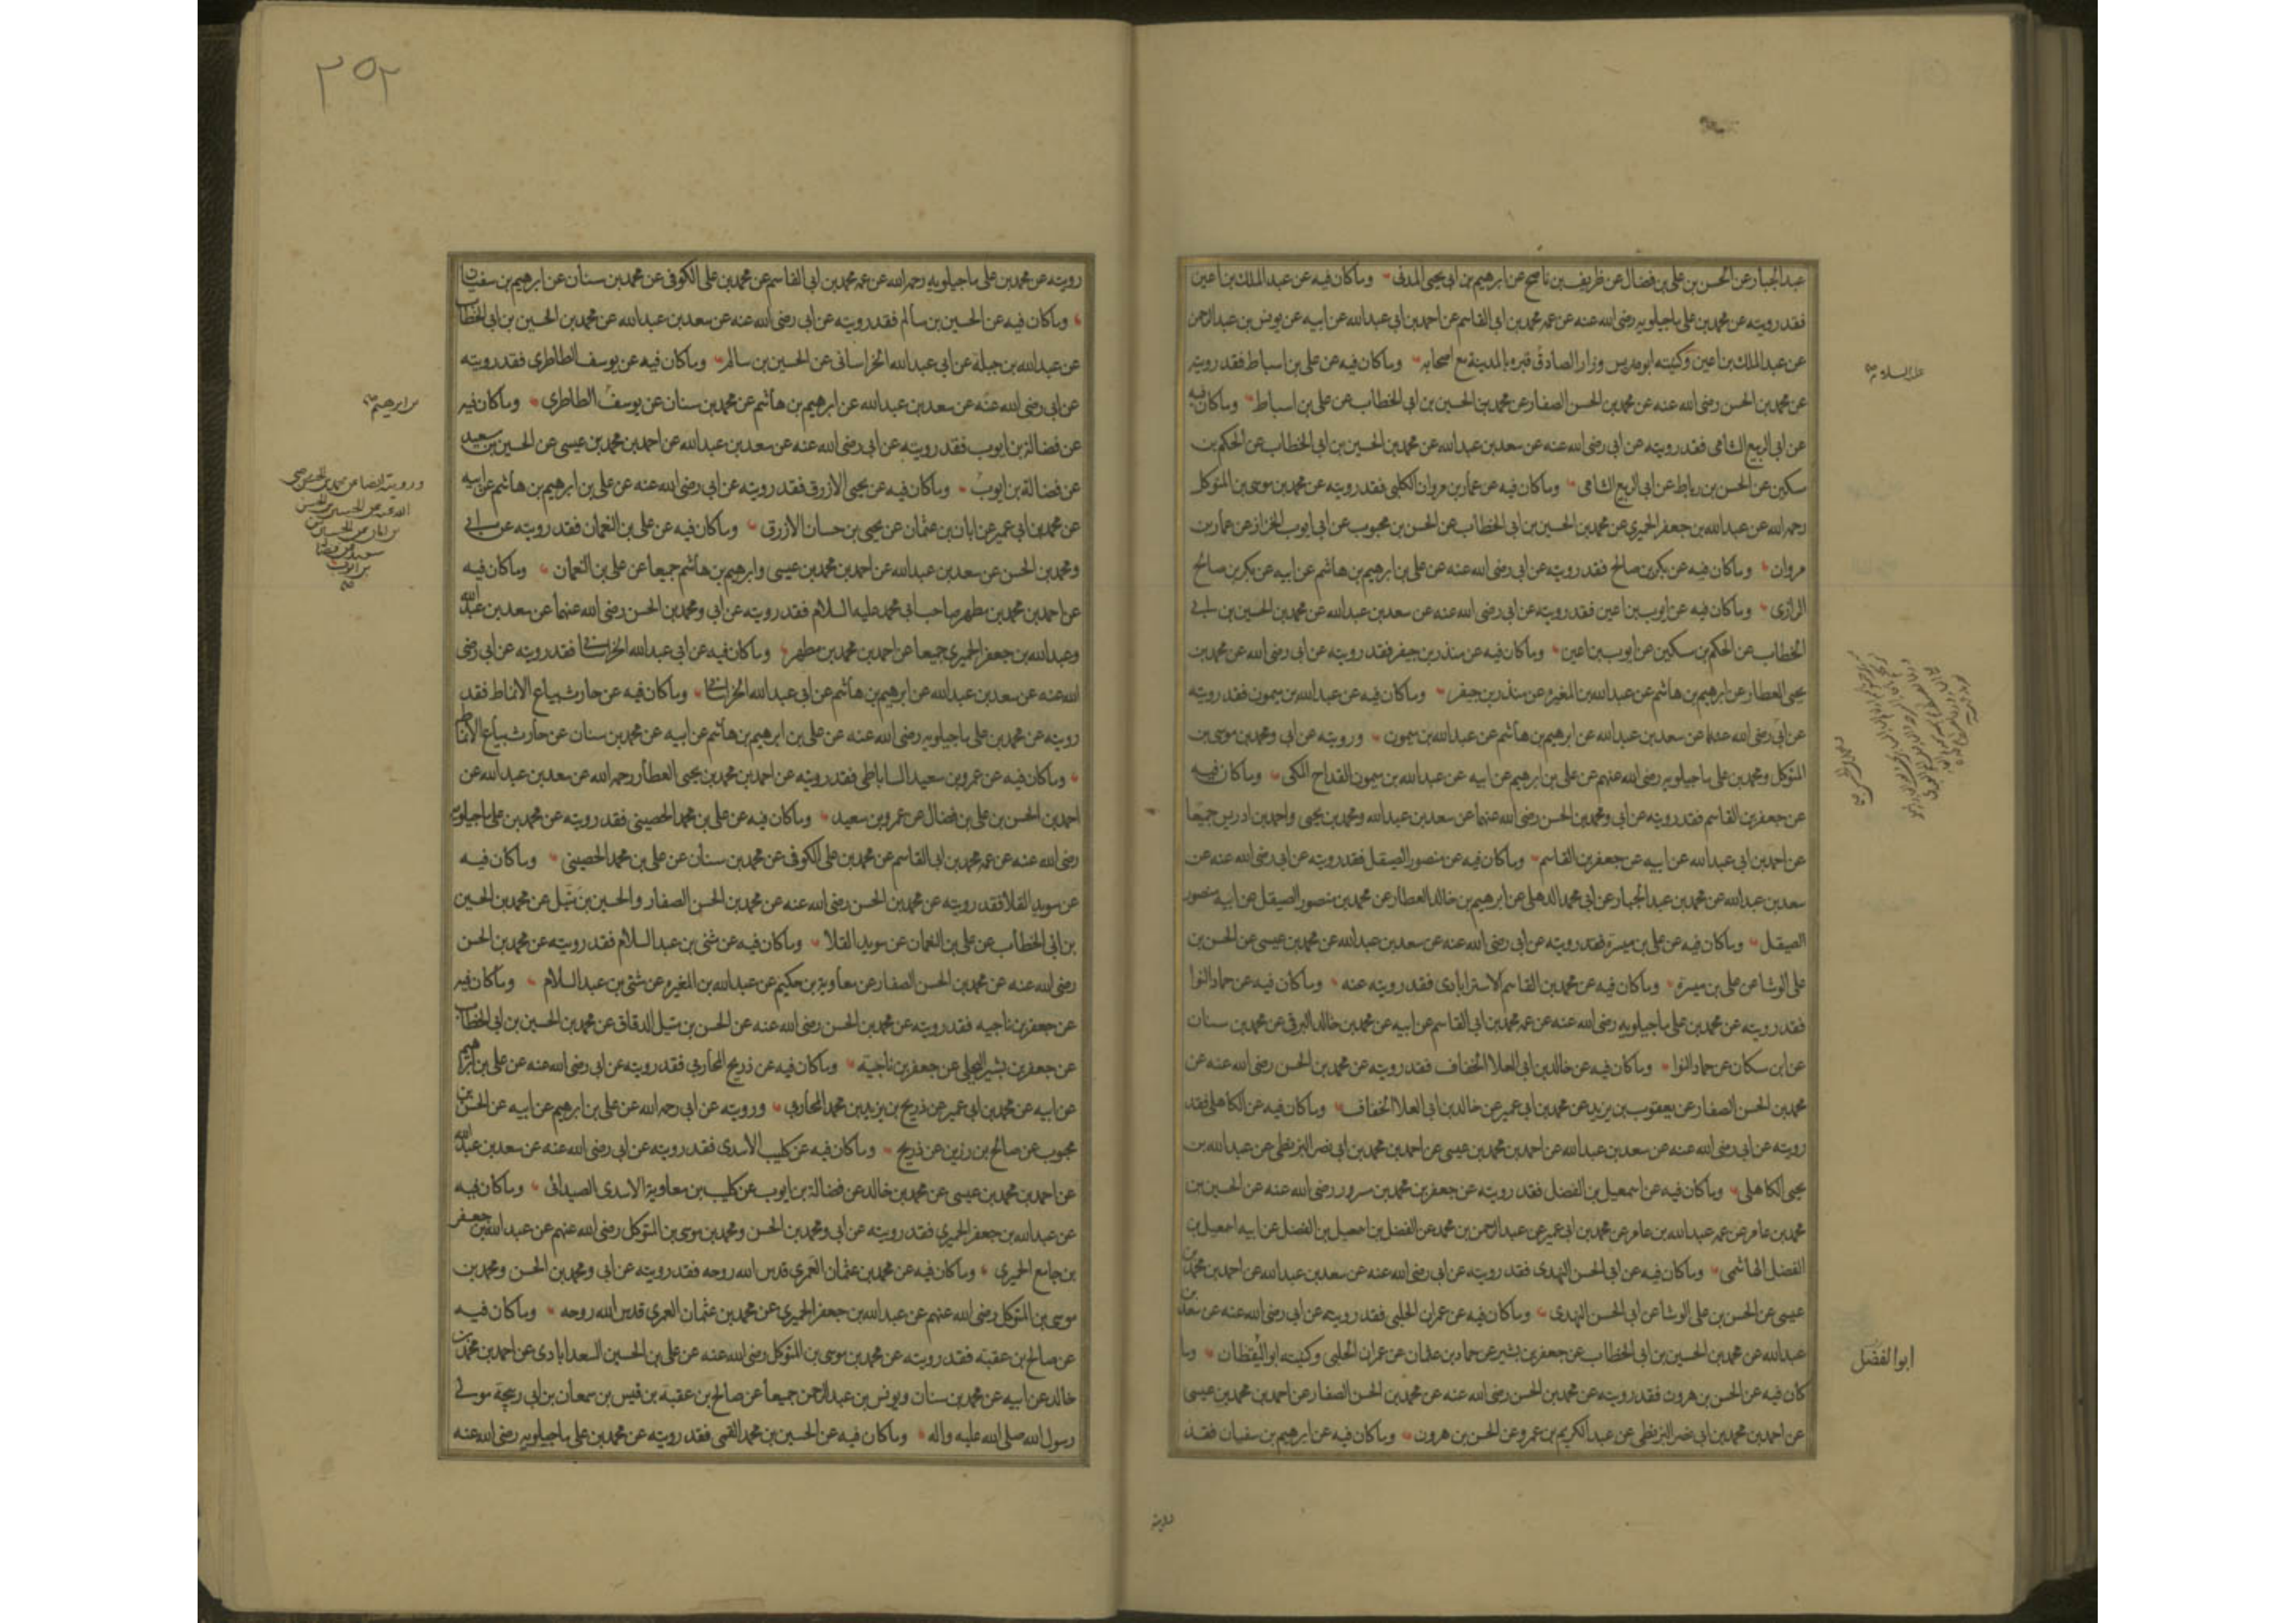 عبدالجبار عن الحسن بن علی بن فضال عن ظریف بن ناصح عن ابرهیم بن ابی یحیی المدنی وماکان فیه عن عبدالملک بن اعین
فقد رویته عن محمد بن علی ماجیلویه رضی الله عنه عن عمه محمد بن ابی القاسم عن احمد بن ابی عبدالله عن ابیه عن یونس بن عبدالرحمن
عن عبدالملک بن اعین وکنیته ابوضریس وزار الصادق قبره بالمدینة مع اصحابه وماکان فیه عن علی بن اسباط فقد رویته
عن محمد بن الحسن رضی الله عنه عن محمد بن الحسن الصفار عن محمد بن الحسین بن ابی الخطاب عن علی بن اسباط وماکان فیه
عن ابی الربیع الشامی فقد رویته عن ابی رضی الله عنه عن سعد بن عبدالله عن محمد بن الحسین بن ابی الخطاب عن الحکم بن
سکین عن الحسن بن رباط عن ابی الربیع الشامی وماکان فیه عن عمار بن مروان الکلبی فقد رویته عن محمد بن موسی بن المتوکل
رحمه الله عن عبدالله بن جعفر الحمیری عن محمد بن الحسین بن ابی الخطاب عن الحسن بن محبوب عن ابی ایوب الخراز عن عمار بن
مروان وماکان فیه عن بکر بن صالح فقد رویته عن ابی رضی الله عنه عن علی بن ابرهیم بن هاشم عن ابیه عن بکر بن صالح
الرازی وماکان فیه عن ایوب بن اعین فقد رویته عن ابی رضی الله عنه عن سعد بن عبدالله عن محمد بن الحسین بن ابی
الخطاب عن الحکم بن سکین عن ایوب بن اعین وماکان فیه عن منذر بن جیفر فقد رویته عن ابی رضی الله عن محمد بن
یحیی العطار عن ابرهیم بن هاشم عن عبدالله بن المغیره عن منذر بن جیفر وماکان فیه عن عبدالله بن میمون فقد رویته
عن ابی رضی الله عنهما عن سعد بن عبدالله عن ابرهیم بن هاشم عن عبدالله بن میمون ورویته عن ابی ومحمد بن موسی بن
المتوکل ومحمد بن علی ماجیلویه رضی الله عنهم عن علی بن ابرهیم عن ابیه عن عبدالله بن میمون القداح المکی وماکان فیه
عن جعفر بن القاسم فقد رویته عن ابی ومحمد بن الحسن رضی الله عنهما عن سعد بن عبدالله ومحمد بن یحیی واحمد بن ادریس جمیعا
عن احمد بن ابی عبدالله عن ابیه عن جعفر بن القاسم وماکان فیه عن منصور الصیقل فقد رویته عن ابی رضی الله عنه عن
سعد بن عبدالله عن محمد بن عبدالجبار عن ابی محمد الدهلی عن ابرهیم بن خالد العطار عن محمد بن منصور الصیقل عن ابیه منصور
الصیقل وماکان فیه عن علی بن میسرة فقد رویته عن ابی رضی الله عنه عن سعد بن عبدالله عن محمد بن عیسی عن الحسن بن
علی الوشا عن علی بن میسرة وماکان فیه عن محمد بن القاسم الاسترابادی فقد رویته عنه وماکان فیه عن حماد النوا
فقد رویته عن محمد بن علی ماجیلویه رضی الله عنه عن عمه محمد بن ابی القاسم عن ابیه عن محمد بن خالد البرقی عن محمد بن سنان
عن ابن سکان عن حماد النوا وماکان فیه عن خالد بن ابی العلا الخفاف فقد رویته عن محمد بن الحسن رضی الله عنه عن
محمد بن الحسن الصفار عن یعقوب بن یزید عن محمد بن ابی عمیر عن خالد بن ابی العلا الخفاف وماکان فیه عن الکاهلی فقد
رویته عن ابی رضی الله عنه عن سعد بن عبدالله عن احمد بن محمد بن عیسی عن احمد بن محمد بن ابی نصر البزنطی عن عبدالله بن
یحیی الکاهلی وماکان فیه عن اسمعیل بن الفضل فقد رویته عن جعفر بن محمد بن سرور رضی الله عنه عن الحسین بن
محمد بن عامر عن عمه عبدالله بن عامر عن محمد بن ابی عمیر عن عبدالرحمن بن محمد عن الفضل بن اسمعیل بن الفضل عن ابیه اسمعیل بن
الفضل الهاشمی وماکان فیه عن ابی الحسن النهدی فقد رویته عن ابی رضی الله عنه عن سعد بن عبدالله عن احمد بن محمد بن
عیسی عن الحسن بن علی الوشا عن ابی الحسن النهدی وماکان فیه عن عمران الحلبی فقد رویته عن ابی رضی الله عنه عن سعد بن
عبدالله عن محمد بن الحسین بن ابی الخطاب عن جعفر بن بشیر عن حماد بن عثمان عن عمران الحلبی وکنیته ابوالیقظان وما
کان فیه عن الحسن بن هرون فقد رویته عن محمد بن الحسن رضی الله عنه عن محمد بن الحسن الصفار عن احمد بن محمد بن عیسی
عن احمد بن محمد بن ابی نصر البزنطی عن عبدالکریم بن عمرو عن الحسن بن هرون وماکان فیه عن ابرهیم بن سفیان فقد
علیه السلام
ابوالفضل
رویته
۲۵۲
رویته عن محمد بن علی ماجیلویه رحمه الله عن عمه محمد بن ابی القاسم عن محمد بن علی الکوفی عن محمد بن سنان عن ابرهیم بن سفیان
وماکان فیه عن الحسین بن سالم فقد رویته عن ابی رضی الله عنه عن سعد بن عبدالله عن محمد بن الحسین بن ابی الخطاب
عن عبدالله بن جبلة عن ابی عبدالله الخراسانی عن الحسین بن سالم وماکان فیه عن یوسف الطاطری فقد رویته
عن ابی رضی الله عنه عن سعد بن عبدالله عن ابرهیم بن هاشم عن محمد بن سنان عن یوسف الطاطری وماکان فیه
عن فضالة بن ایوب فقد رویته عن ابی رضی الله عنه عن سعد بن عبدالله عن احمد بن محمد بن عیسی عن الحسین بن سعید
عن فضالة بن ایوب وماکان فیه عن یحیی الازرق فقد رویته عن ابی رضی الله عنه عن علی بن ابرهیم بن هاشم عن ابیه
عن محمد بن ابی عمیر عن ابان بن عثمان عن یحیی بن حسان الازرق وماکان فیه عن علی بن النعمان فقد رویته عن ابی
ومحمد بن الحسن عن سعد بن عبدالله عن احمد بن محمد بن عیسی وابرهیم بن هاشم جمیعا عن علی بن النعمان وماکان فیه
عن احمد بن محمد بن مطهر صاحب ابی محمد علیه السلام فقد رویته عن ابی ومحمد بن الحسن رضی الله عنهما عن سعد بن عبدالله
وعبدالله بن جعفر الحمیری جمیعا عن احمد بن محمد بن مطهر وماکان فیه عن ابی عبدالله الخراسانی فقد رویته عن ابی رضی
الله عنه عن سعد بن عبدالله عن ابرهیم بن هاشم عن ابی عبدالله الخراسانی وماکان فیه عن حارث بیاع الانماط فقد
رویته عن محمد بن علی ماجیلویه رضی الله عنه عن علی بن ابرهیم بن هاشم عن ابیه عن محمد بن سنان عن حارث بیاع الانماط
وماکان فیه عن عمرو بن سعید الساباطی فقد رویته عن احمد بن محمد بن یحیی العطار رحمه الله عن سعد بن عبدالله عن
احمد بن الحسن بن علی بن فضال عن عمرو بن سعید وماکان فیه عن علی بن محمد الحصینی فقد رویته عن محمد بن علی ماجیلویه
رضی الله عنه عن عمه محمد بن ابی القاسم عن محمد بن علی الکوفی عن محمد بن سنان عن علی بن محمد الحصینی وماکان فیه
عن سوید القلا فقد رویته عن محمد بن الحسن رضی الله عنه عن محمد بن الحسن الصفار والحسین بن متیل عن محمد بن الحسین
بن ابی الخطاب عن علی بن النعمان عن سوید القلا وماکان فیه عن مثنی بن عبدالسلام فقد رویته عن محمد بن الحسن
رضی الله عنه عن محمد بن الحسن الصفار عن معاویة بن حکیم عن عبدالله بن المغیره عن مثنی بن عبدالسلام وماکان فیه
عن جعفر بن ناجیه فقد رویته عن محمد بن الحسن رضی الله عنه عن الحسن بن متیل الدقاق عن محمد بن الحسین بن ابی الخطاب
عن جعفر بن بشیر البجلی عن جعفر بن ناجیة وماکان فیه عن ذریح المحاربی فقد رویته عن ابی رضی الله عنه عن علی بن ابرهیم
عن ابیه عن محمد بن ابی عمیر عن ذریح بن یزید بن محمد المحاربی ورویته عن ابی رحمه الله عن علی بن ابرهیم عن ابیه عن الحسن بن
محبوب عن صالح بن رزین عن ذریح وماکان فیه عن کلیب الاسدی فقد رویته عن ابی رضی الله عنه عن سعد بن عبدالله
عن احمد بن محمد بن عیسی عن محمد بن خالد عن فضالة بن ایوب عن کلیب بن معاویة الاسدی الصیدانی وماکان فیه
عن عبدالله بن جعفر الحمیری فقد رویته عن ابی ومحمد بن الحسن ومحمد بن موسی بن المتوکل رضی الله عنهم عن عبدالله بن جعفر
بن جامع الحمیری وماکان فیه عن محمد بن عثمان العمری قدس الله روحه فقد رویته عن ابی ومحمد بن الحسن ومحمد بن
موسی بن المتوکل رضی الله عنهم عن عبدالله بن جعفر الحمیری عن محمد بن عثمان العمری قدس الله روحه وماکان فیه
عن صالح بن عقبة فقد رویته عن محمد بن موسی بن المتوکل رضی الله عنه عن علی بن الحسین السعدابادی عن احمد بن محمد بن
خالد عن ابیه عن محمد بن سنان ویونس بن عبدالرحمن جمیعا عن صالح بن عقبة بن قیس بن سمعان بن ابی ربیحة مولی
رسول الله صلی الله علیه واله وماکان فیه عن الحسین بن محمد القمی فقد رویته عن محمد بن علی ماجیلویه رضی الله عنه
بن ابرهیم
ورویته ایضا عن محمد بن الحسن رضی
الله عنه عن الحسین بن الحسن
بن ابان عن الحسین بن
سعید عن فضالة
بن ایوب